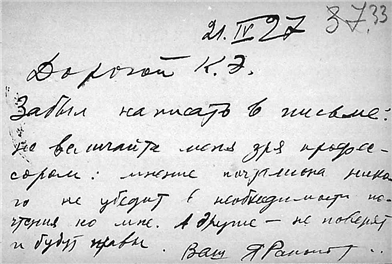 37.33
21.IV 27
Дорогой К.Э.
Забыл написать в письме:
не величайте меня зря профес-
сором: мнение почталиона нико-
го не убедит в необходимости по-
чтения ко мне. А другие – не поверят
и будут правы.
Ваш